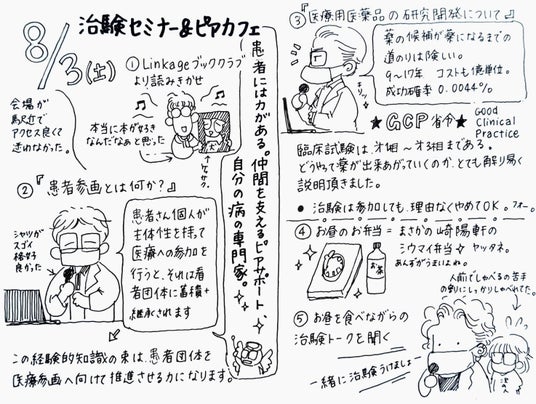 8/3(土)
治験セミナー&ピアカフェ
会場が
駅近で
アクセス良くて
迷わなかった。
① Linkageブッククラブ
より読みきかせ
本当に本が好き
なんだなぁと思った
② 『患者参画とは何か?』
シャツが
スゴイ
格好
良かった
患者さん個人が
主体性を持って
医療への参加を
行うと、それは患
者団体に蓄積+
継承されます
この経験的知識の束は、患者団体を
医療参画へ向けて推進させる力になります。
患者には力がある。仲間を支えるピアサポート、
自分の病の専門家。
③ 『医療用医薬品の研究開発について』
薬の候補が薬になるまでの
道のりは険しい。
9〜17年 コストも億単位。
成功確率 0.0044%
★GCP省令★
Good
Clinical
Practice
臨床試験は、オ1相〜オ3相まである。
どうやって薬が出来あがっていくのか、とても解り易く
説明頂きました。
● 治験は参加しても、理由なくやめてOK。フォー。
④ お昼のお弁当=まさかの崎陽軒の
シウマイ弁当 ヤッタネ。
あんずがうまいよね。
お茶
⑤ お昼を食べながらの
治験トークを聞く
人前でしゃべるの苦手
の割にしっかりしゃべれてた。
一緒に治験うけましょー